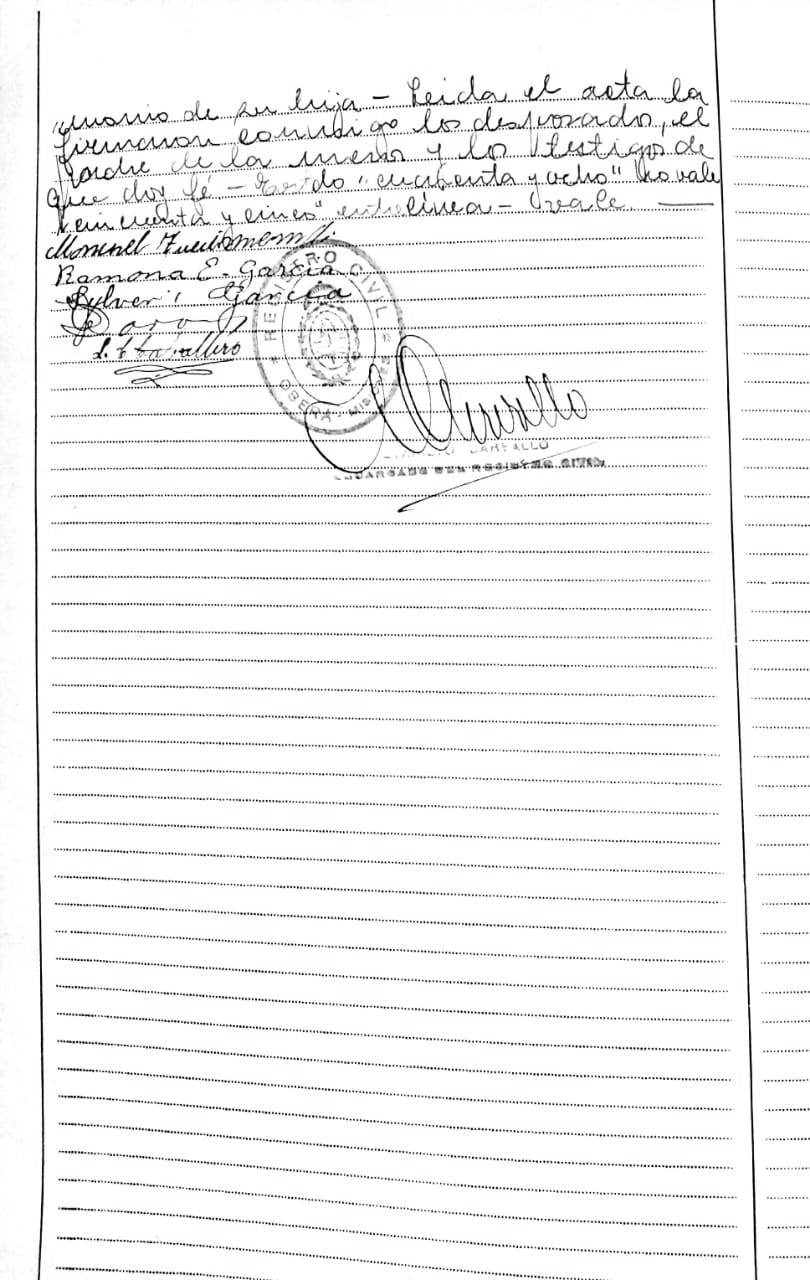 monio de su hija – Leida el acta la
firmaron conmigo los desposado, el
Padre de la menor y los testigos de
que doy fé – "cuarenta y ocho" No vale
"cincuenta y cinco" entre línea – Vale.
Manuel
Ramona E. Garcia
Silveri Garcia
L. C. Caballero
REGISTRO CIVIL
OBERÁ - MISIONES
ENCARGADO DEL REGISTRO CIVIL